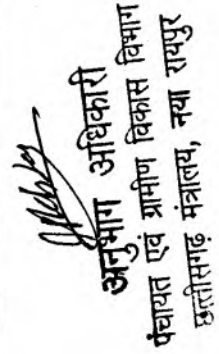 अनुभाग अधिकारी
पंचायत एवं ग्रामीण विकास विभाग
छत्तीसगढ़ मंत्रालय, नया रायपुर